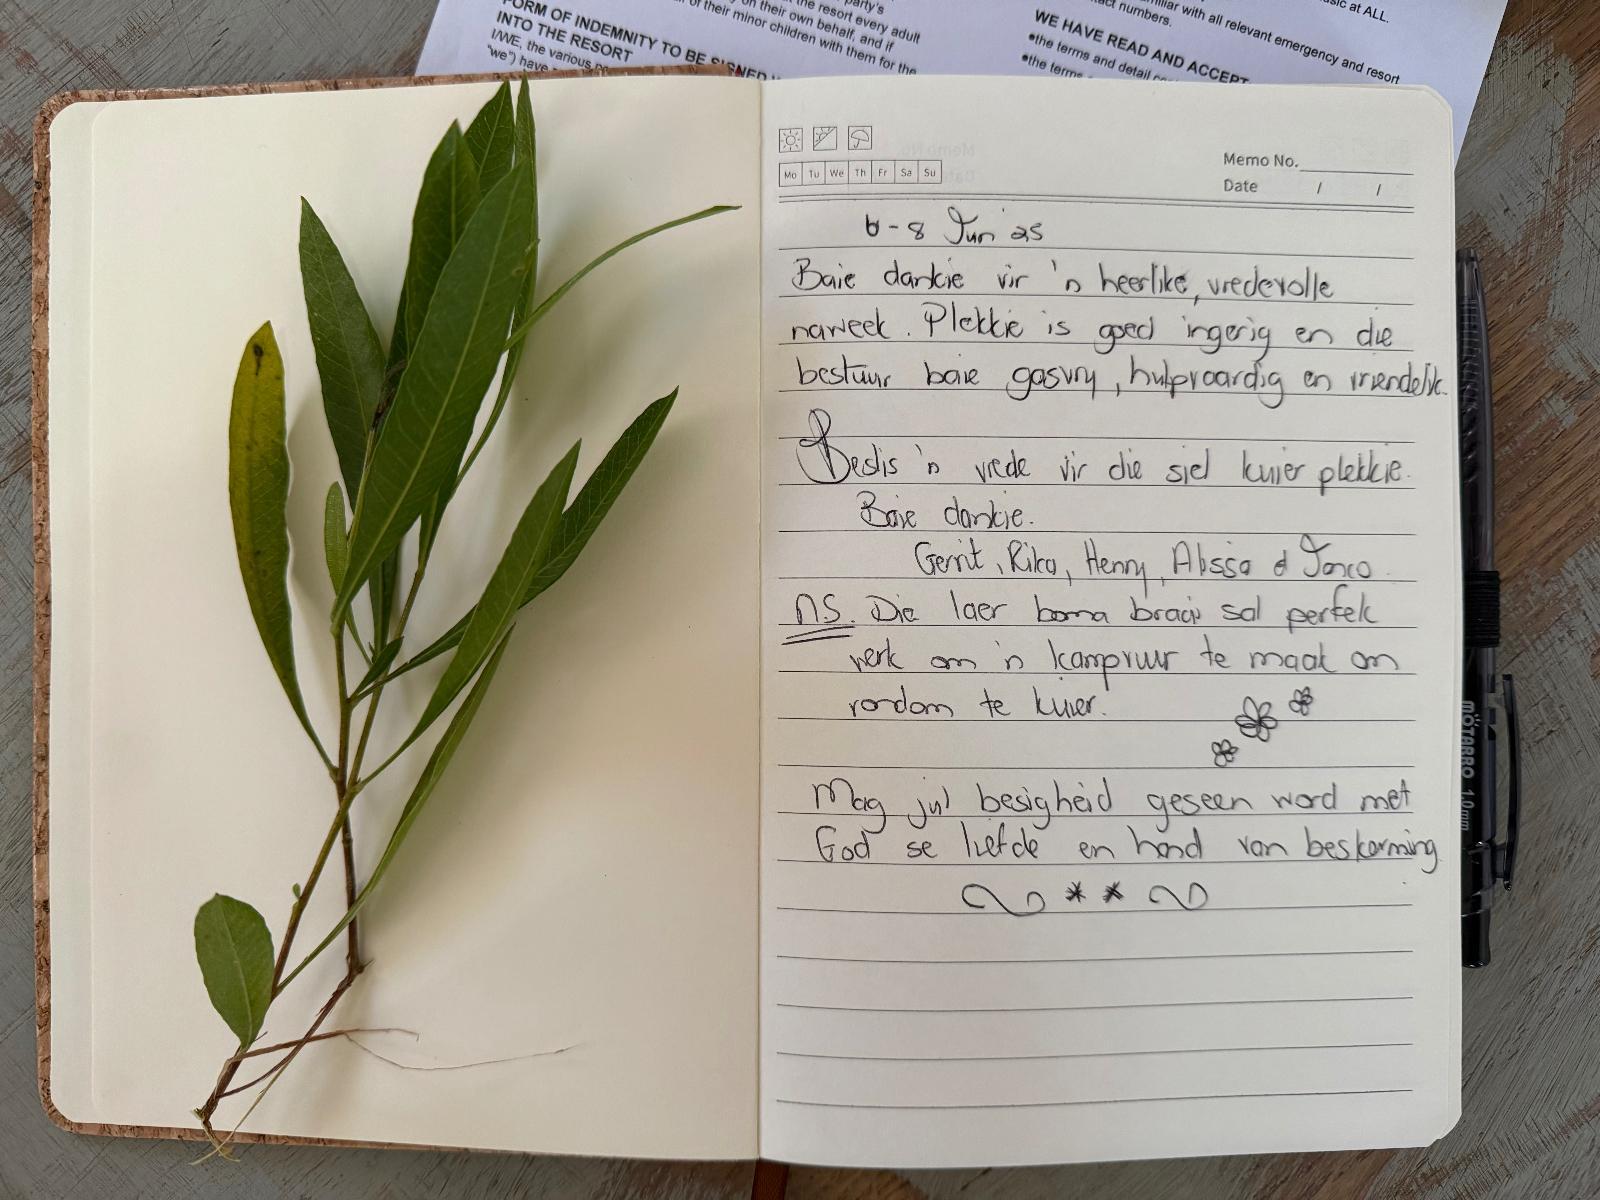 party's
the resort every adult
on their own behalf, and if
of their minor children with them for the
FORM OF INDEMNITY TO BE SIGNED
INTO THE RESORT
I/WE, the various
"we") have
music at ALL.
familiar with all relevant emergency and resort
contact numbers.
WE HAVE READ AND ACCEPT
•the terms and detail
•the terms
Mo Tu We Th Fr Sa Su
Memo No.
Date / /
6-8 Jun '25
Baie dankie vir 'n heerlike, vredevolle
naweek. Plekkie is goed ingerig en die
bestuur baie gasvry, hulpvaardig en vriendelik.
Beslis 'n vrede vir die siel kuier plekkie.
Baie dankie.
Gerrit, Rika, Henry, Alissa & Janco.
NS. Die laer boma braai sal perfek
werk om 'n kampvuur te maak om
rondom te kuier.
Mag jul besigheid geseen word met
God se liefde en hand van beskerming.
MOTARRO 1.0mm